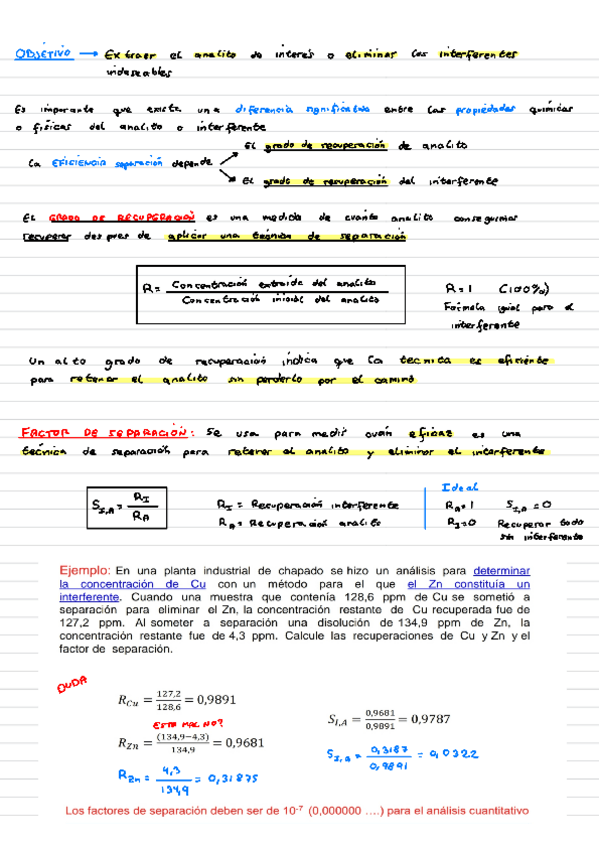 OBJETIVO → Extraer el analito de interés o eliminar los interferentes
indeseables
Es imporante que exista una diferencia significativa entre las propiedades químicas
o físicas del analito o interferente
El grado de recuperación de analito
La EFICIENCIA separación depende
El grado de recuperación del interferente
El GRADO DE RECUPERACIÓN es una medida de cuanto analito conseguimos
recuperar despues de aplicar una técnica de separación
R = Concentración extraída del analito / Concentración inicial del analito
R = 1 (100%)
Fórmula igual para el
interferente
Un alto grado de recuperación indica que la tecnica es eficiente
para retener el analito sin perderlo por el camino
FACTOR DE SEPARACIÓN: Se usa para medir cuán eficaz es una
técnica de separación para retener al analito y eliminar el interferente
S I,A = R I / R A
R I = Recuperación interferente
R A = Recuperación analito
Ideal
R A = 1 S I,A = 0
R I = 0 Recuperar todo
sin interferente
Ejemplo: En una planta industrial de chapado se hizo un análisis para determinar
la concentración de Cu con un método para el que el Zn constituía un
interferente. Cuando una muestra que contenía 128,6 ppm de Cu se sometió a
separación para eliminar el Zn, la concentración restante de Cu recuperada fue de
127,2 ppm. Al someter a separación una disolución de 134,9 ppm de Zn, la
concentración restante fue de 4,3 ppm. Calcule las recuperaciones de Cu y Zn y el
factor de separación.
DUDA
R Cu = 127,2 / 128,6 = 0,9891
ESTA MAL NO?
R Zn = (134,9−4,3) / 134,9 = 0,9681
S I,A = 0,9681 / 0,9891 = 0,9787
R Zn = 4,3 / 134,9 = 0,31875
S I,A = 0,3187 / 0,9891 = 0,0322
Los factores de separación deben ser de 10-7 (0,000000 ....) para el análisis cuantitativo